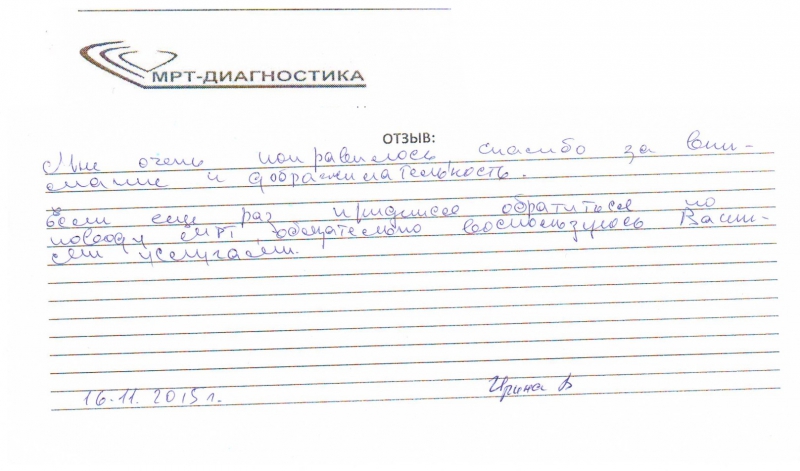 МРТ-ДИАГНОСТИКА
ОТЗЫВ:
Мне очень понравилось, спасибо за вни-
мание и доброжелательность.
Если еще раз придется обратиться по
поводу МРТ, обязательно воспользуюсь Ваши-
ми услугами.
16.11.2015г. Ирина В